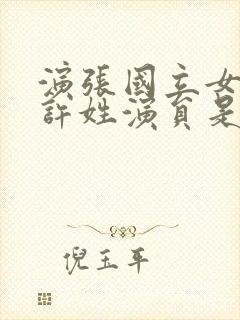 演張國立女
許姓演員是
倪玉平